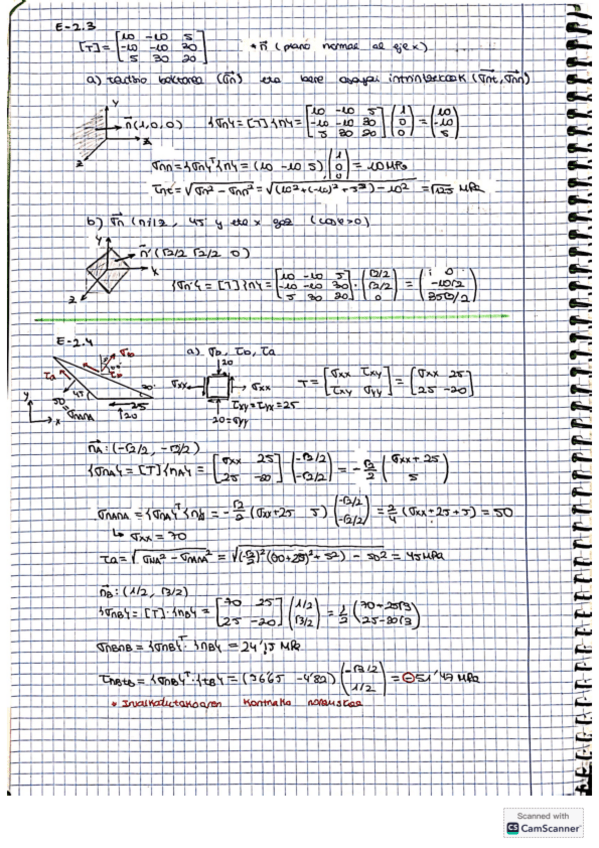 E-2.3
[T] = [10 -10 5; -10 -10 30; 5 30 20] * n⃗ (plano normal al eje x)
a) tentsio bektorea (σ⃗n) eta bere osagai intrintsekoak (σ⃗nt, σ⃗nn)
Y
n⃗(1,0,0) {σn} = [T]{n} = [10 -10 5; -10 -10 30; 5 30 20] (1; 0; 0) = (10; -10; 5)
z
σnn = {σn}ᵀ{n} = (10 -10 5) (1; 0; 0) = 10 MPa
τnt = √σn² - σnn² = √(10² + (-10)² + 5²) - 10² = √125 MPa
b) σ⃗n (n⊥z, 45 y eta x (cos>0)
Y
n⃗'(√2/2 √2/2 0)
x
z
{σn'} = [T]{n} = [10 -10 5; -10 -10 30; 5 30 20] · (√2/2; √2/2; 0) = (0; -10√2; 35√2/2)
E-2.4
a) σb, τb, τa
τa σb τb
20
σxx σxx
T = [σxx τxy; τxy σyy] = [σxx 25; 25 -20]
45° 30°
50 = σnana
25
20
y x
τxy = τyx = 25
20 = σyy
n⃗A: (-√2/2, -√2/2)
{σnA} = [T]{nA} = [σxx 25; 25 -20] (-√2/2; -√2/2) = -√2/2 (σxx + 25; 5)
σnAnA = {σnA}ᵀ{nA} = -√2/2 (σxx+25 5) (-√2/2; -√2/2) = 2/4 (σxx + 25 + 5) = 50
↳ σxx = 70
τa = √σnA² - σnAnA² = √(-√2/2)² (70+25)² + 5²) - 50² = 45 MPa
n⃗B: (1/2, √3/2)
{σnB} = [T]·{nB} = [70 25; 25 -20] (1/2; √3/2) = 1/2 (70+25√3; 25-20√3)
σnBnB = {σnB}ᵀ · {nB} = 24'15 MPa
τnBtB = {σnB}ᵀ · {tB} = (56'65 -4'82) (-√3/2; 1/2) = ⊖51'47 MPa
* kontrako noranzkoa
Scanned with
CS CamScanner